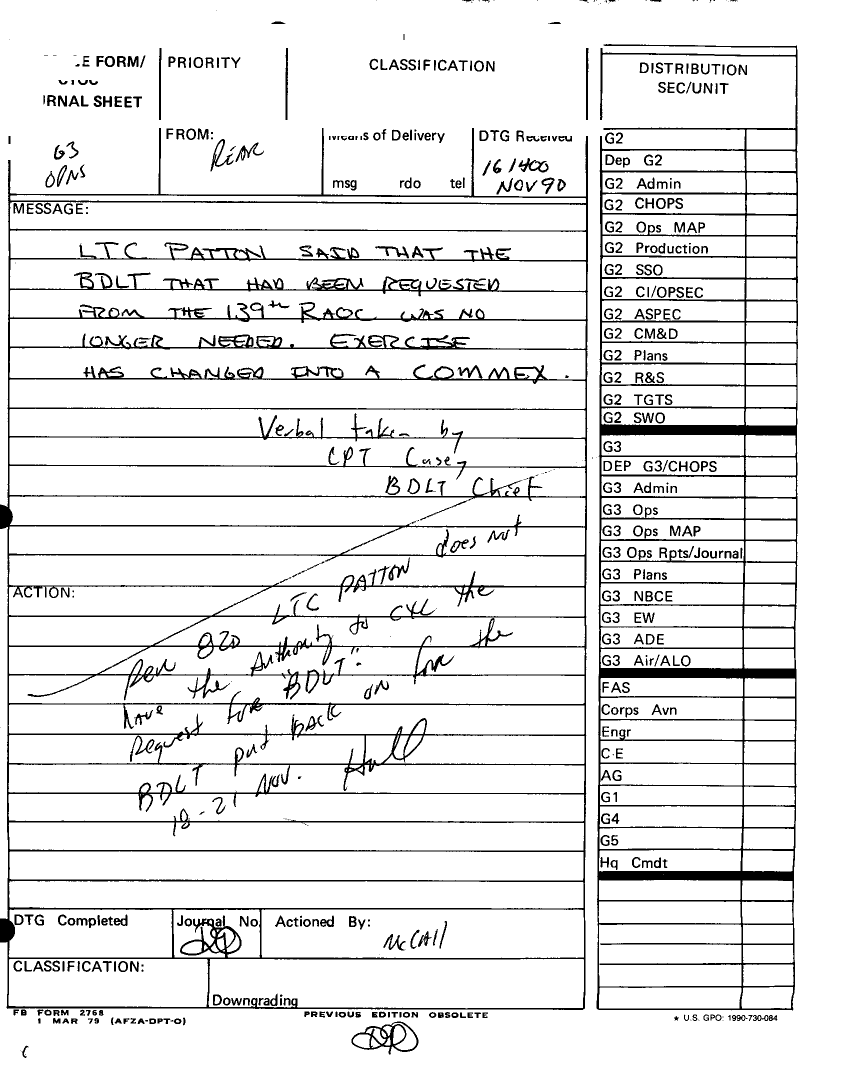 E FORM/
RNAL SHEET
PRIORITY
CLASSIFICATION
DISTRIBUTION
SEC/UNIT
G3
OPNS
FROM:
REAR
Means of Delivery
msg rdo tel
DTG Received
161400
NOV 90
MESSAGE:
LTC PATTON SAID THAT THE
BDLT THAT HAD BEEN REQUESTED
FROM THE 139th RAOC WAS NO
LONGER NEEDED. EXERCISE
HAS CHANGED INTO A COMMEX.
Verbal taken by
CPT Casey
BDLT Chief
ACTION:
Per G3D LTC PATTON does not
have the Authority to CXL the
Request for "BDLT".
BDLT put back on for the
18-21 NOV. Hall
DTG Completed
Journal No
Actioned By:
McCAll
CLASSIFICATION:
Downgrading
FB FORM 2768
1 MAR 79 (AFZA-DPT-O)
PREVIOUS EDITION OBSOLETE
G2
Dep G2
G2 Admin
G2 CHOPS
G2 Ops MAP
G2 Production
G2 SSO
G2 CI/OPSEC
G2 ASPEC
G2 CM&D
G2 Plans
G2 R&S
G2 TGTS
G2 SWO
G3
DEP G3/CHOPS
G3 Admin
G3 Ops
G3 Ops MAP
G3 Ops Rpts/Journal
G3 Plans
G3 NBCE
G3 EW
G3 ADE
G3 Air/ALO
FAS
Corps Avn
Engr
C-E
AG
G1
G4
G5
Hq Cmdt
★ U.S. GPO: 1990-730-084